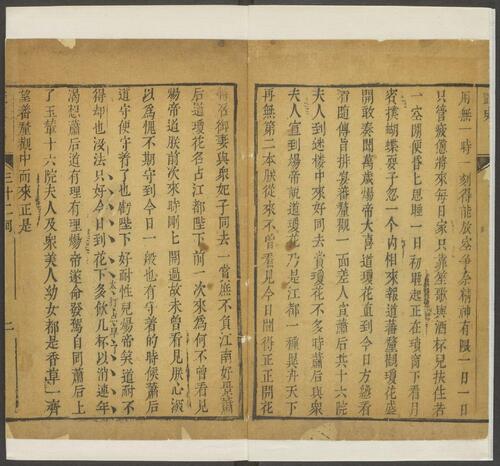 用無一時一刻得能放寛爭奈精神有限一日一日
只管疲憊將來每日家只靠笙歌與酒杯兒扶住若
一空閑便昏昏思睡一日初睡起正在瓊窗下看月
賓撲蝴蝶耍子忽一个内相來報道蕃釐觀瓊花盛
開敢奏聞萬歲煬帝大喜道瓊花直到今日方纔看
着隨傳旨排宴蕃釐觀一面差人宣蕭后共十六院
夫人到迷樓中來好同去賞瓊花不多時蕭后與衆
夫人直到煬帝說道瓊花乃是江都一種異卉天下
再無第二本朕從來不曾看見今日聞得正正開花
特召御妻與衆妃子同去一賞庶不負江南好景蕭
后道瓊花名占江都陛下前一次來為何不曾看見
煬帝道朕前次來時剛上開過故未曾看見朕心深
以為愧不期守到今日一般也有守着的時候蕭后
道守便守着了也虧陛下好耐性兒煬帝笑道耐不
得却也没法只好今日到花下多飲几杯以消連年
渴想蕭后道有理有理煬帝遂命發駕自同蕭后上
了玉輦十六院夫人及衆美人幼女都是香車一齊
望蕃釐觀中而來正是
三十二回
二